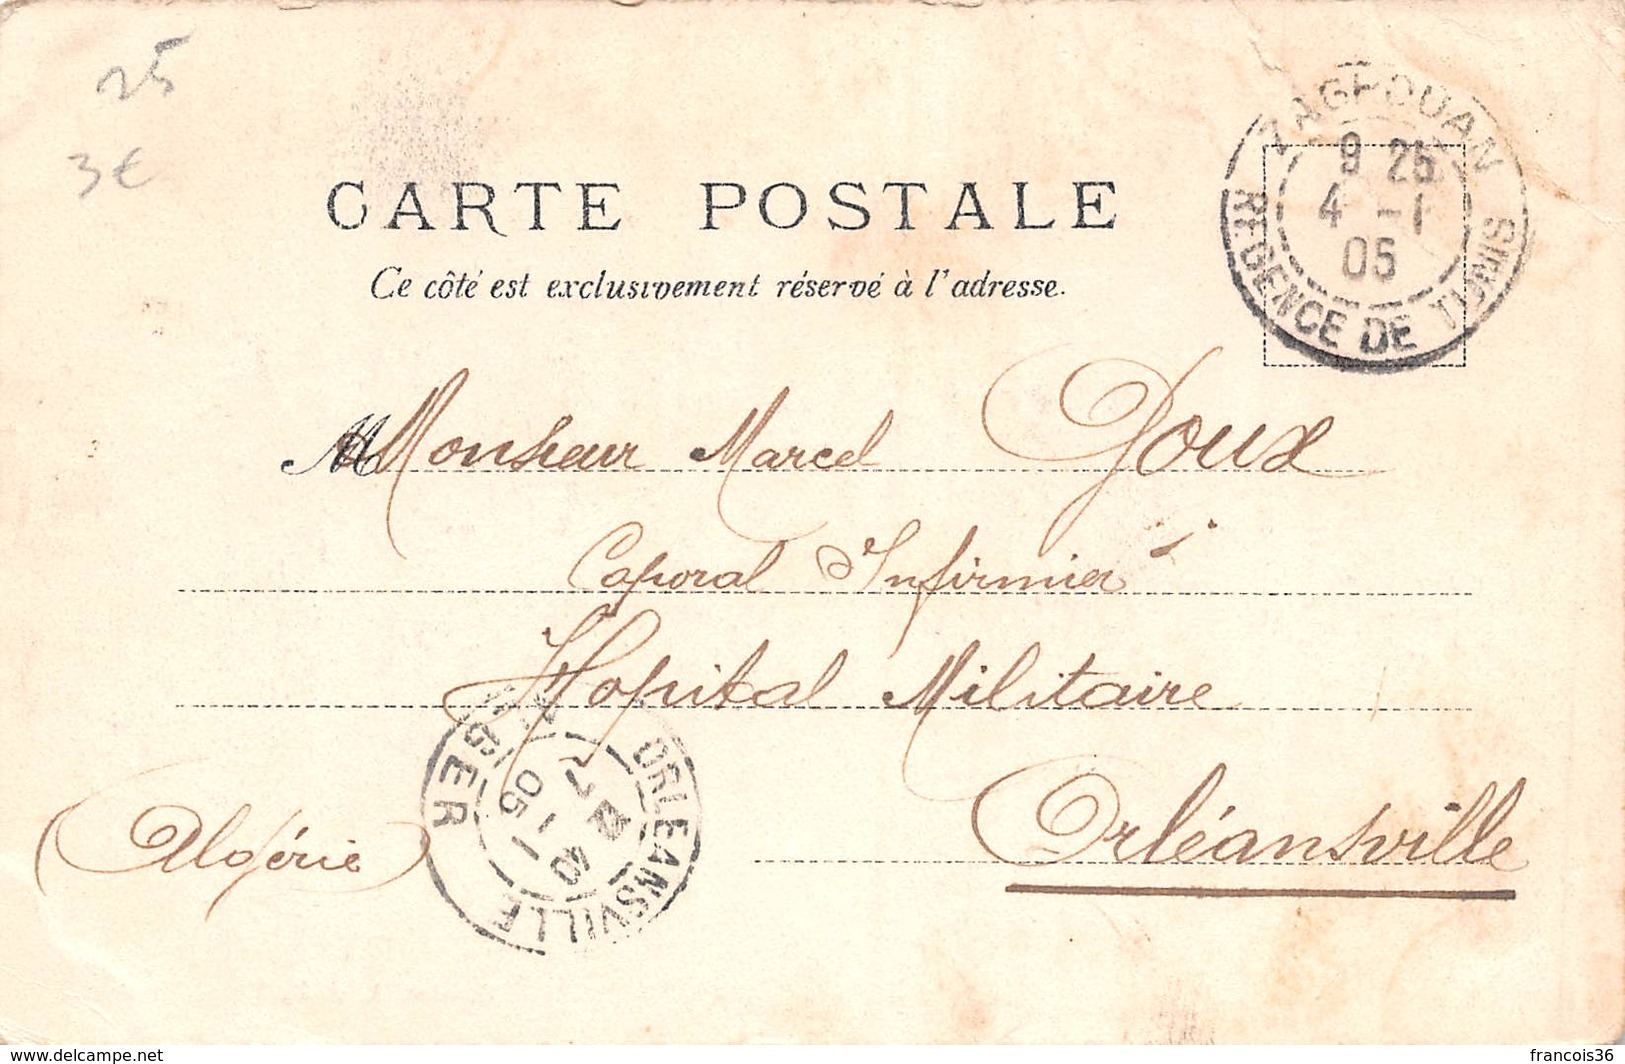 25
3€
CARTE POSTALE
Ce côté est exclusivement réservé à l'adresse.
ZAGHOUAN
9 25
4 -1
05
REGENCE DE TUNIS
M Monsieur Marcel Doux
Caporal Infirmier
Hopital Militaire
Orléansville
(Algérie)
ORLEANSVILLE
ALGER
7 40
05
www.delcampe.net
francois36